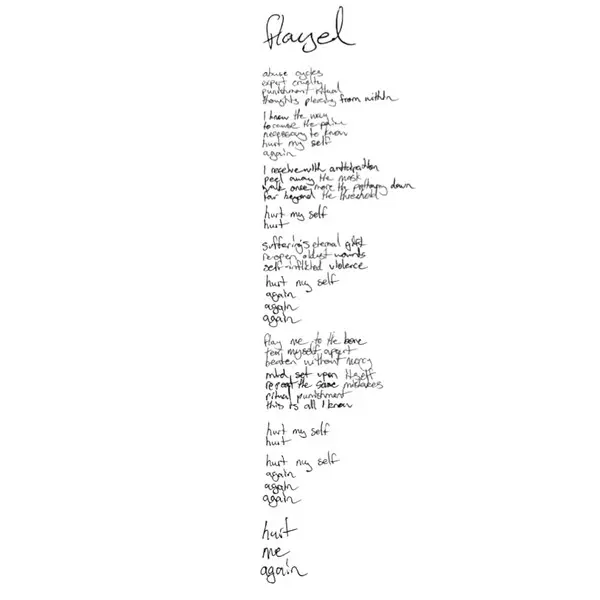 flayed
abuse cycles
expert cruelty
punishment ritual
thoughts piercing from within
I know the way
to cause the pain
necessary to know
hurt my self
again
I receive with anticipation
peel away the mask
walk once more the pathway down
far beyond the threshold
hurt my self
hurt
suffering's eternal gift
re-open oldest wounds
self-inflicted violence
hurt my self
again
again
again
flay me to the bone
tear myself apart
beaten without mercy
mind set upon itself
repeat the same mistakes
ritual punishment
this is all I know
hurt my self
hurt
hurt my self
again
again
again
hurt
me
again